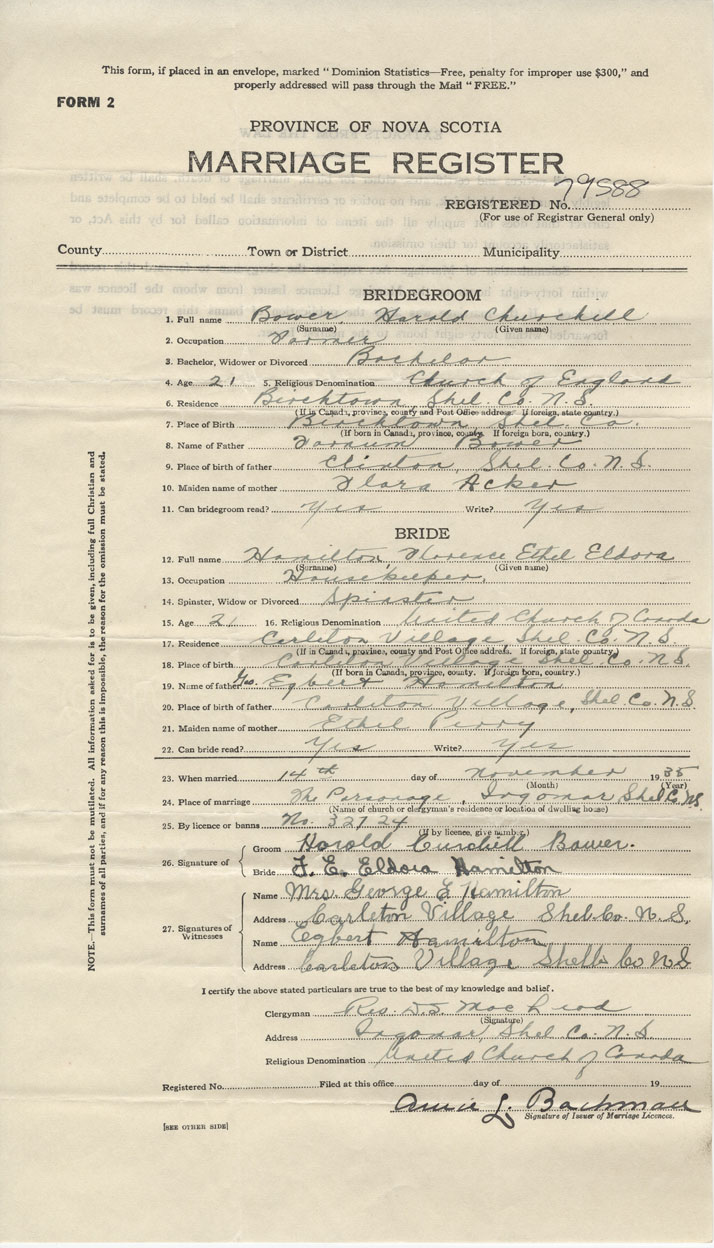 This form, if placed in an envelope, marked "Dominion Statistics—Free, penalty for improper use $300," and
properly addressed will pass through the Mail "FREE."
FORM 2
PROVINCE OF NOVA SCOTIA
MARRIAGE REGISTER
REGISTERED No. 79588
(For use of Registrar General only)
County Town or District Municipality
BRIDEGROOM
1. Full name Bower, Harold Churchill
(Surname) (Given name)
2. Occupation Farmer
3. Bachelor, Widower or Divorced Bachelor
4. Age 21 5. Religious Denomination Church of England
6. Residence Birchtown Shel. Co. N.S.
(If in Canada, province, county and Post Office address. If foreign, state country.)
7. Place of Birth Birchtown, Shel. Co.
(If born in Canada, province, county. If foreign born, country.)
8. Name of Father Bower
9. Place of birth of father Clinton, Shel. Co. N.S.
10. Maiden name of mother Flora Acker
11. Can bridegroom read? Yes Write? Yes
BRIDE
12. Full name Hamilton, Florence Ethel Eldora
(Surname) (Given name)
13. Occupation Housekeeper,
14. Spinster, Widow or Divorced Spinster
15. Age 21 16. Religious Denomination United Church of Canada
17. Residence Carleton Village, Shel. Co. N.S.
(If in Canada, province, county and Post Office address. If foreign, state country.)
18. Place of birth Carleton Village Shel Co. N.S.
(If born in Canada, province, county. If foreign born, country.)
19. Name of father Geo. Egbert Hamilton
20. Place of birth of father Carleton Village, Shel Co. N.S.
21. Maiden name of mother Ethel Perry
22. Can bride read? Yes Write? Yes
23. When married 14th day of November 1935
(Month) (Year)
24. Place of marriage The Parsonage, Ingomar, Shel Co. N.S.
(Name of church or clergyman's residence or location of dwelling house)
25. By licence or banns No. 32724
(If by licence, give number.)
26. Signature of
Groom Harold Curchell Bower.
Bride F. E. Eldora Hamilton
27. Signatures of Witnesses
Name Mrs George E Hamilton
Address Carleton Village Shel Co. N.S.
Name Egbert Hamilton
Address Carleton Village Shelb Co N S
I certify the above stated particulars are true to the best of my knowledge and belief.
Clergyman Rev. D.S. MacLeod
(Signature)
Address Ingomar, Shel Co. N.S
Religious Denomination United Church of Canada
Registered No. Filed at this office day of 19
Annie L. Bachman
Signature of Issuer of Marriage Licences.
[SEE OTHER SIDE]
NOTE.—This form must not be mutilated. All information asked for is to be given, including full Christian and
surnames of all parties, and if for any reason this is impossible, the reason for the omission must be stated.